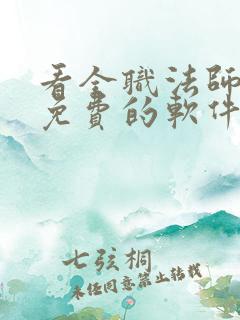 看全職法師
免費的軟件
七弦桐
未经同意禁止转载